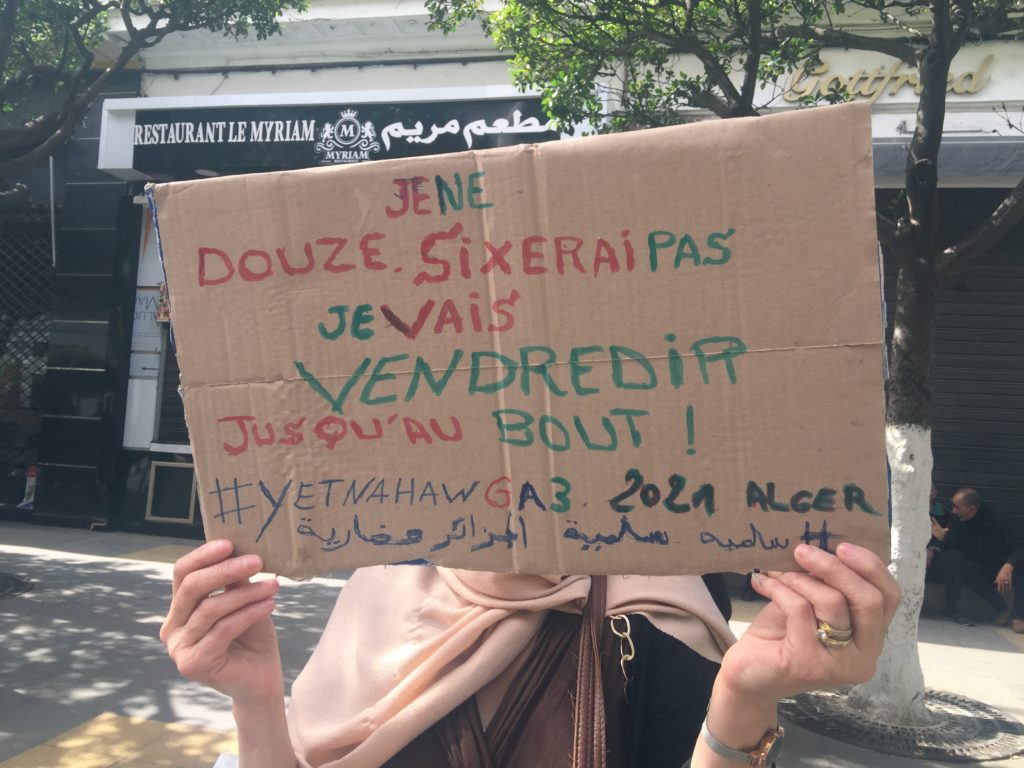 Gottfried
RESTAURANT LE MYRIAM
M
MYRIAM
RESTAURANT
مطعم مريم
JE NE
DOUZE. SIXERAI PAS
JE VAIS
VENDREDIR
JUSQU'AU BOUT !
#YETNAHAW GA3. 2021 ALGER
#سلميه. سلمية الجزائر حضارية